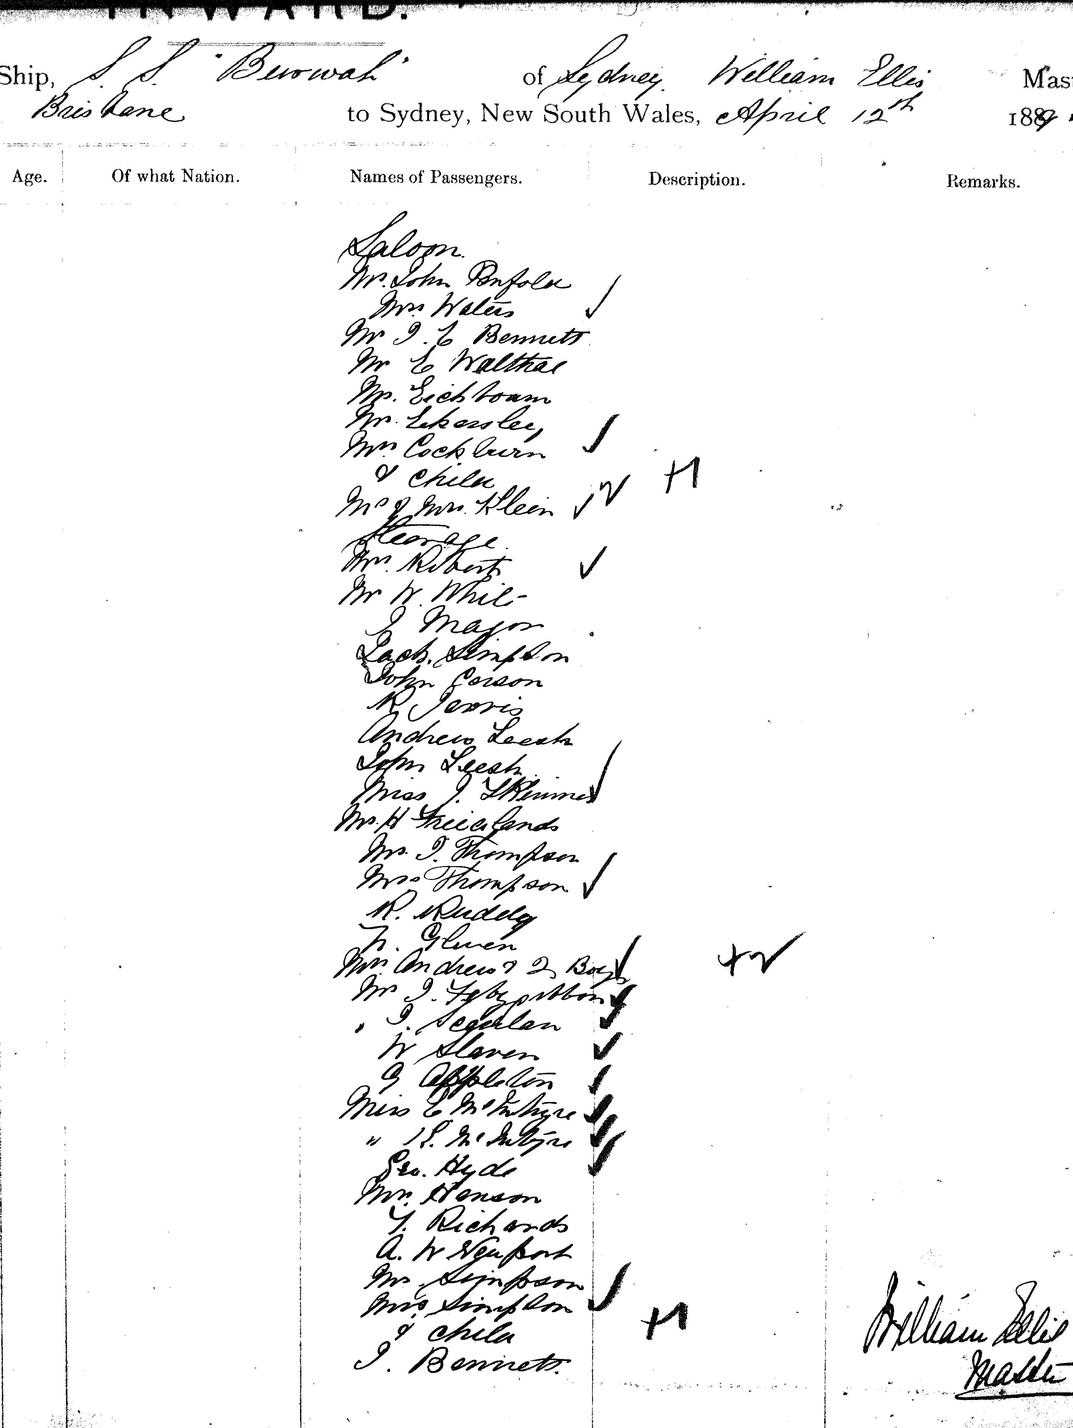 INWARD.
Ship, S. S. "Burwah" of Sydney, William Ellis Mas
Brisbane to Sydney, New South Wales, April 12th 1889
Age. Of what Nation. Names of Passengers. Description. Remarks.
Saloon.
Mr. John Penfold
Mrs Waters
Mr J. E Bennett
Mr E Walthal
Mr. Eichbaum
Mr. Ekersley
Mrs Cockburn
& child +1
Mr & Mrs. Klein
Steerage.
Mrs. Roberts
Mr W. White
J Major
Zach. Simpson
John Corson
R Jarvis
Andrew Leesh
John Leesh
Miss J. Skinner
Mr. H Frielands
Mr. J. Thompson
Mrs Thompson
R. Ruddy
Mrs. Andrew & 2 Boys +2
Mr J. Fitzgibbon
" J. Scanlan
W Slaven
G Appleton
Miss E McIntyre
" S. McIntyre
Geo. Hyde
Mr. Hanson
T. Richards
A. W Newport
Mr Simpson
Mrs. Simpson
& child +1
J. Bennett.
William Ellis
Master